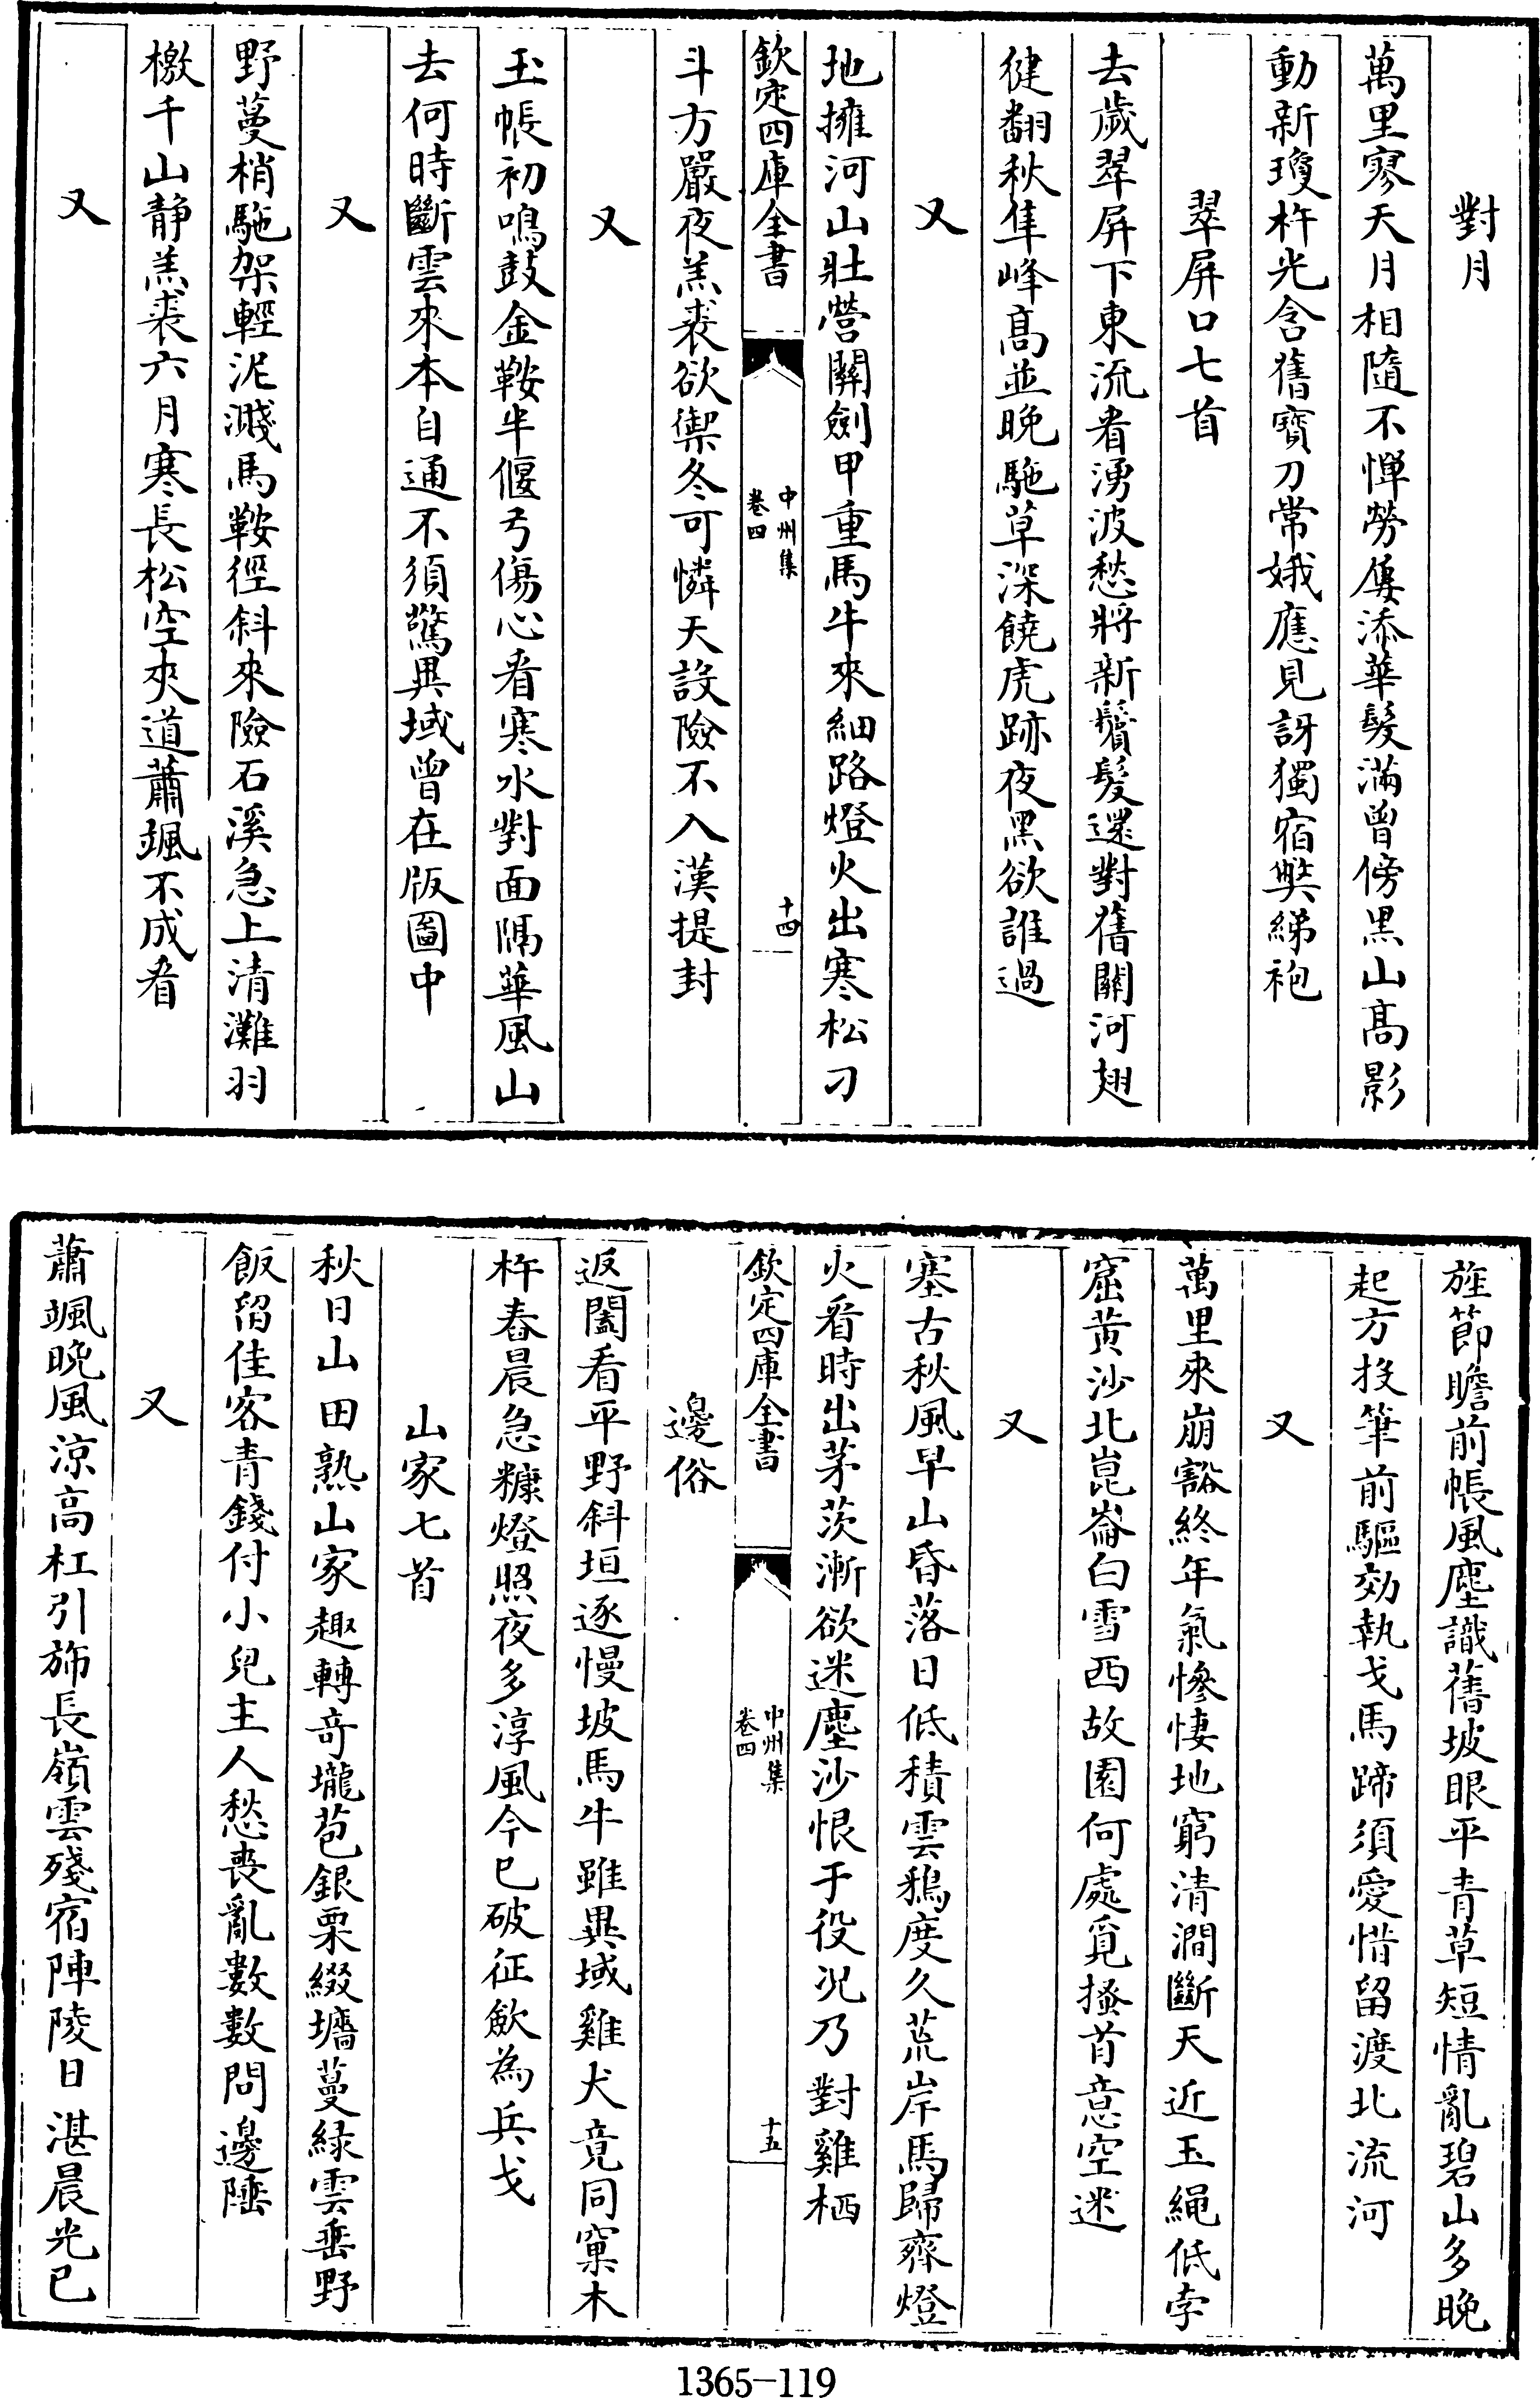 對月
萬里寥天月相隨不憚勞屢添華髮滿曾傍黑山高影
動新瓊杵光含舊寶刀常娥應見訝獨宿弊綈袍
翠屏口七首
去歲翠屏下東流看湧波愁將新鬢髮還對舊關河翅
健翻秋隼峰高並晚駞草深饒虎跡夜黑欲誰過
又
地擁河山壯營關劍甲重馬牛來細路燈火出寒松刁
欽定四庫全書
中州集
卷四
十四
斗方嚴夜羔裘欲禦冬可憐天設險不入漢提封
又
玉帳初鳴鼓金鞍半偃弓傷心看寒水對面隔華風山
去何時斷雲來本自通不須驚異域曾在版圖中
又
野蔓梢駞架輕泥濺馬鞍徑斜來險石溪急上清灘羽
檄千山静羔裘六月寒長松空夾道蕭颯不成看
又
旌節瞻前帳風塵識舊坡眼平青草短情亂碧山多晚
起方投筆前驅効執戈馬蹄須愛惜留渡北流河
又
萬里來崩豁終年氣慘悽地窮清澗斷天近玉繩低孛
窟黄沙北崑崙白雪西故園何處覓搔首意空迷
又
塞古秋風早山昏落日低積雲鵶度久荒岸馬歸齊燈
火看時出茅茨漸欲迷塵沙恨于役况乃對雞栖
欽定四庫全書
中州集
卷四
十五
邊俗
返闔看平野斜垣逐慢坡馬牛雖異域雞犬竟同窠木
杵舂晨急糠燈照夜多淳風今已破征歛為兵戈
山家七首
秋日山田熟山家趣轉奇壠苞銀栗綴墻蔓緑雲垂野
飯留佳客青錢付小兒主人愁喪亂數數問邊陲
又
蕭颯晚風涼高杠引斾長嶺雲殘宿陣陵日湛晨光已
1365-119